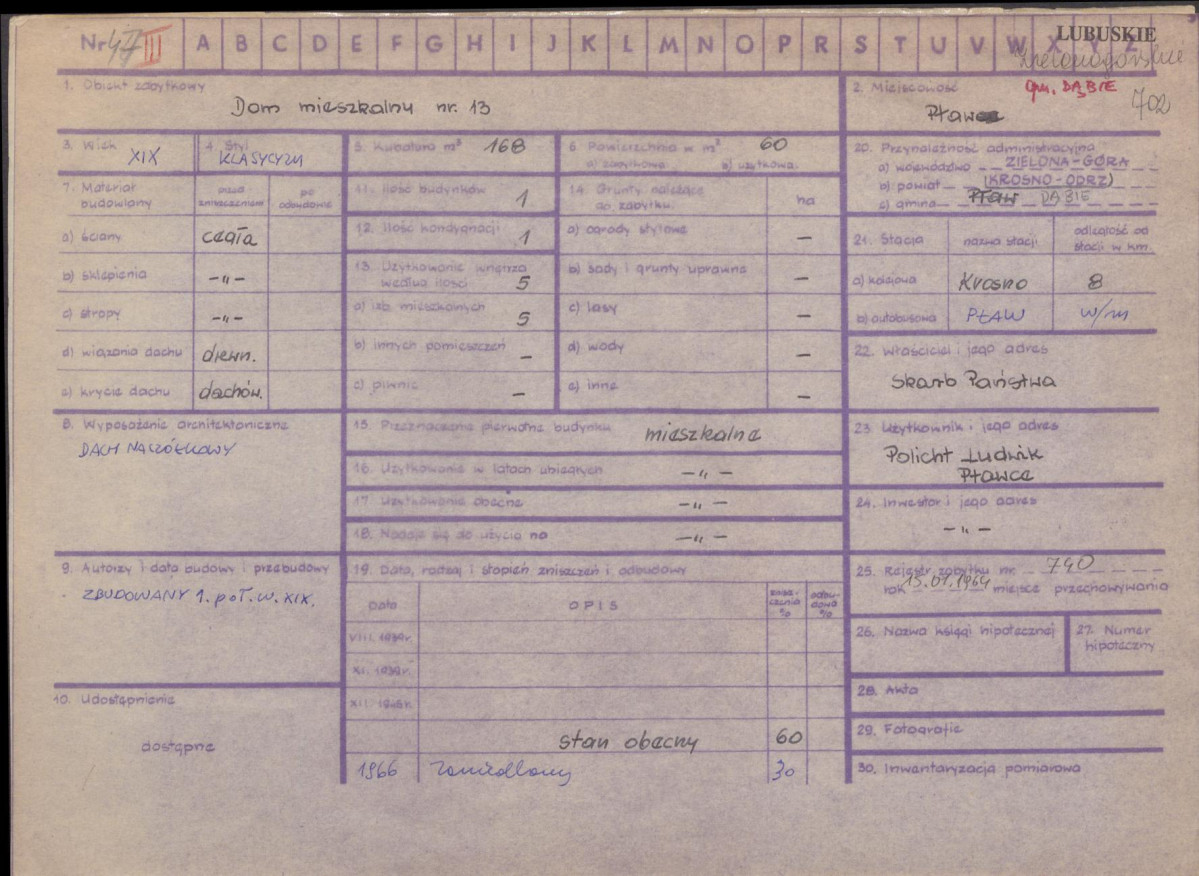 Nr 47 III A B C D E F G H I J K L M N O P R S T U V W X Y Z
LUBUSKIE
zielonogórskie
1. Obiekt zabytkowy
Dom mieszkalny nr. 13
2. Miejscowość
gm. DĄBIE
702
Pław
3. Wiek
XIX
4. Styl
KLASYCYZM
5. Kubatura m³ 168
6 Powierzchnia w m² 60
a) zabytkowa b) użytkowa
7. Materiał budowlany
przed zniszczeniem
po odbudowie
a) ściany cegła
b) sklepienia -"-
c) stropy -"-
d) wiązania dachu drewn.
e) krycie dachu dachów.
11. Ilość budynków 1
12. Ilość kondygnacji 1
13. Użytkowanie wnętrza według ilości 5
a) izb mieszkalnych 5
b) innych pomieszczeń –
c) piwnic –
14. Grunty należące do zabytku
ha
a) ogrody stylowe –
b) sady i grunty uprawne –
c) lasy –
d) wody –
e) inne –
20. Przynależność administracyjna
a) województwo ZIELONA-GÓRA
b) powiat (KROSNO-ODRZ)
c) gmina Pław DĄBIE
21. Stacja
nazwa stacji
odległość od stacji w km.
a) kolejowa Krosno 8
b) autobusowa PŁAW w/m
22. Właściciel i jego adres
Skarb Państwa
8. Wyposażenie architektoniczne
DACH NACZÓŁKOWY
15. Przeznaczenie pierwotne budynku mieszkalne
16. Użytkowanie w latach ubiegłych -"-
17. Użytkowanie obecne -"-
18. Nadaje się do użycia na -"-
23 Użytkownik i jego adres
Policht Ludwik
Pławce
24. Inwestor i jego adres
-"-
9. Autorzy i data budowy i przebudowy
ZBUDOWANY 1. poł. w. XIX.
19. Data, rodzaj i stopień zniszczeń i odbudowy
Data
OPIS
znisz-czenia %
odbu-dowa %
VIII. 1939r.
XI. 1939r.
XII. 1945r.
stan obecny 60
1966 zamieszkany 30
25. Rejestr zabytku nr. 740
rok 15.01.1964 miejsce przechowywania
26. Nazwa księgi hipotecznej
27. Numer hipoteczny
10. Udostępnienie
dostępne
28. Akta
29. Fotografie
30. Inwentaryzacja pomiarowa